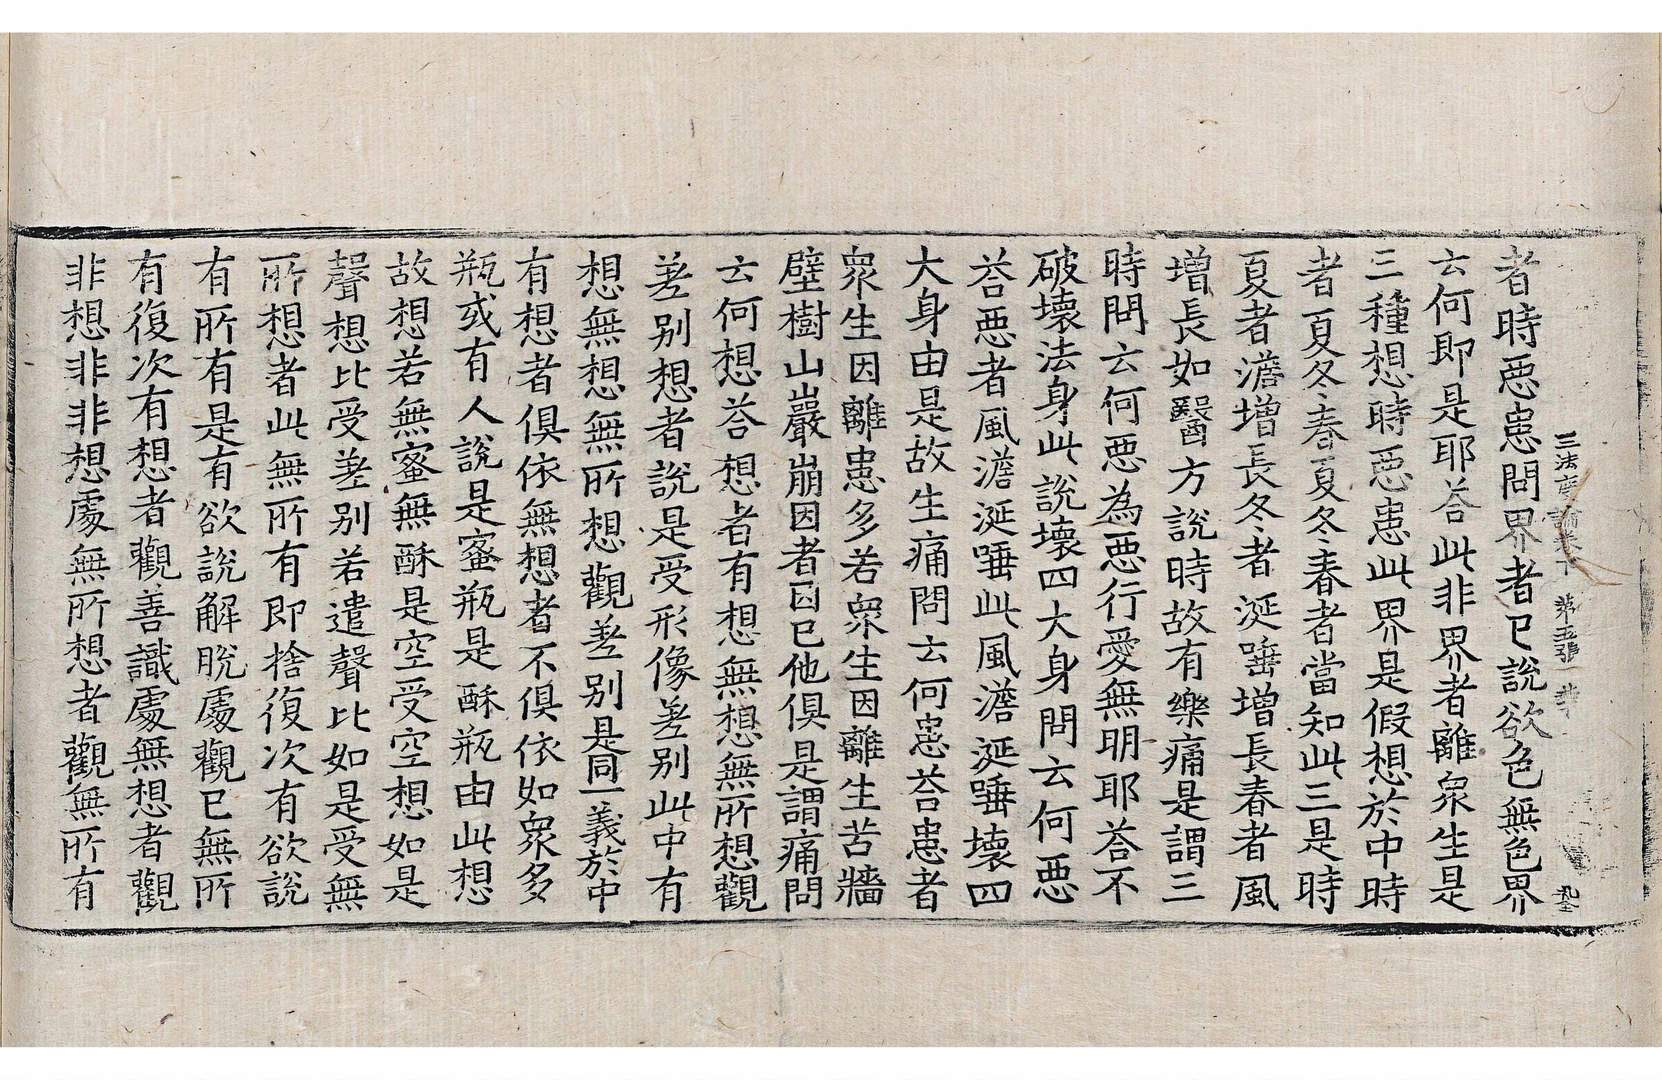 三法度論卷下 第五張
者時惡患問界者已說欲色無色界
云何即是耶荅此非界者離衆生是
三種想時惡患此界是假想於中時
者夏冬春夏冬春者當知此三是時
夏者澹增長冬者涎唾增長春者風
增長如醫方說時故有樂痛是謂三
時問云何惡為惡行愛無明耶荅不
破壞法身此說壞四大身問云何惡
荅惡者風澹涎唾此風澹涎唾壞四
大身由是故生痛問云何患荅患者
衆生因離患多若衆生因離生苦牆
壁樹山巖崩因者因已他俱是謂痛問
云何想荅想者有想無想無所想觀
差別想者說是受形像差別此中有
想無想無所想觀差別是同一義於中
有想者俱依無想者不俱依如衆多
瓶或有人說是蜜瓶是酥瓶由此想
故想若無蜜無酥是空受空想如是
聲想比受差別若遣聲比如是受無
所想者此無所有即捨復次有欲說
有所有是有欲說解脫處觀已無所
有復次有想者觀善識處無想者觀
非想非非想處無所想者觀無所有